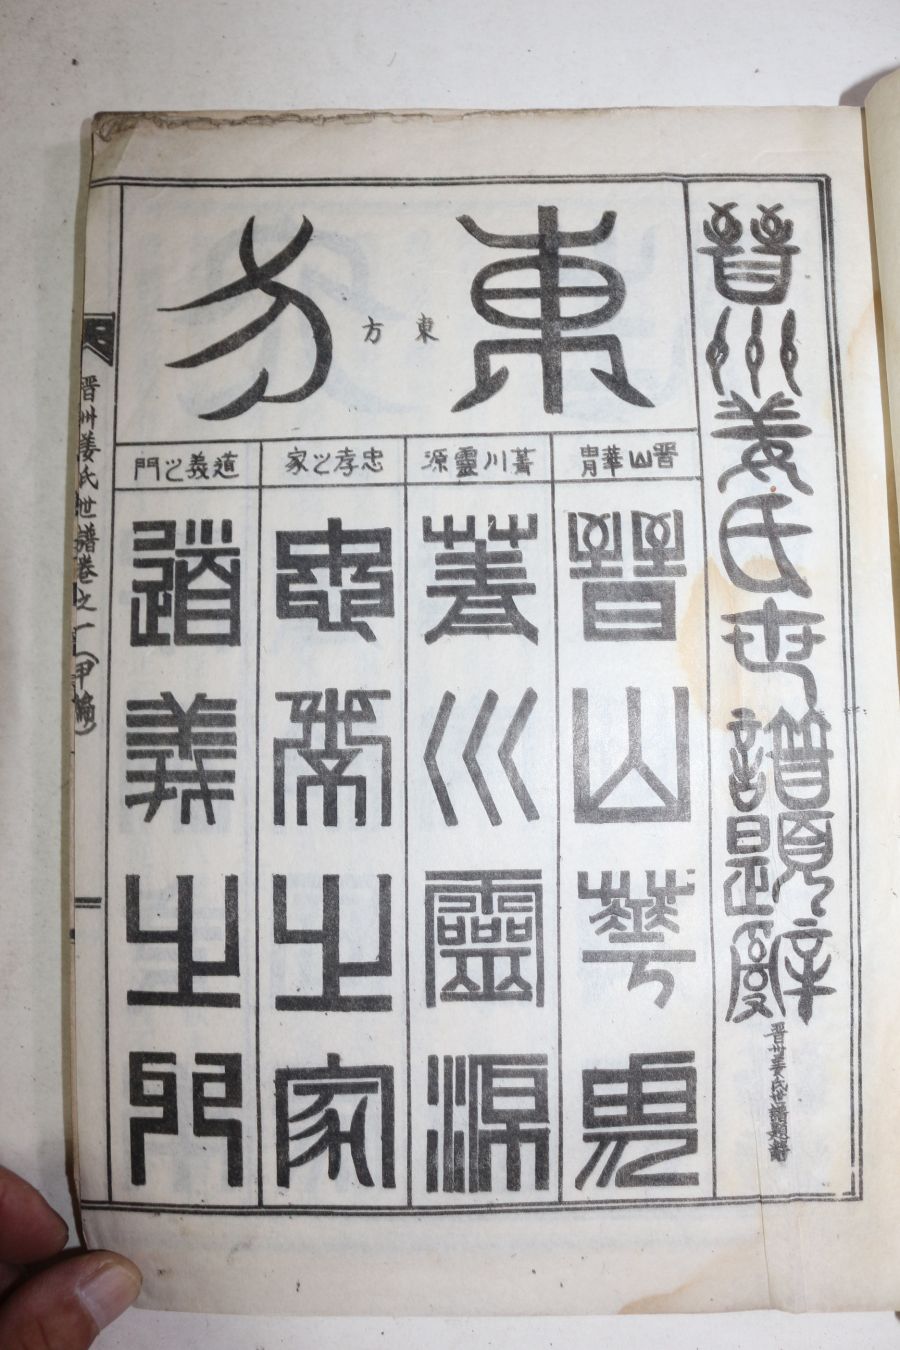 晋州姜氏世譜題辭
晋州姜氏世譜題辭
東方
東方
晋山華胄
晋山華胄
菁川靈源
菁川靈源
忠孝之家
忠孝之家
道義之門
道義之門
晋州姜氏世譜卷之一